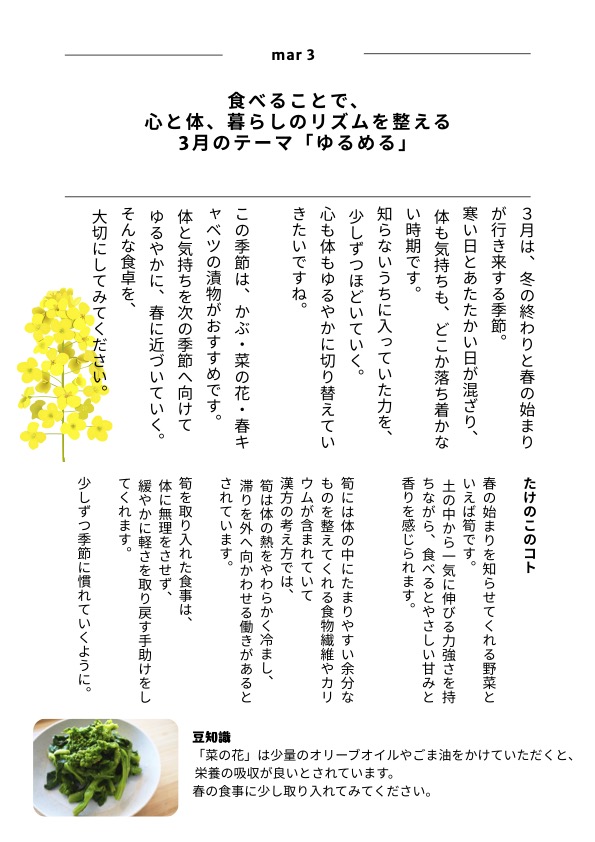 mar 3
食べることで、
心と体、暮らしのリズムを整える
3月のテーマ「ゆるめる」
３月は、冬の終わりと春の始まり
が行き来する季節。
寒い日とあたたかい日が混ざり、
体も気持ちも、どこか落ち着かな
い時期です。
知らないうちに入っていた力を、
少しずつほどいていく。
心も体もゆるやかに切り替えてい
きたいですね。
この季節は、かぶ・菜の花・春キ
ャベツの漬物がおすすめです。
体と気持ちを次の季節へ向けて
ゆるやかに、春に近づいていく。
そんな食卓を、
大切にしてみてください。
たけのこのコト
春の始まりを知らせてくれる野菜と
いえば筍です。
土の中から一気に伸びる力強さを持
ちながら、食べるとやさしい甘みと
香りを感じられます。
筍には体の中にたまりやすい余分な
ものを整えてくれる食物繊維やカリ
ウムが含まれていて
漢方の考え方では、
筍は体の熱をやわらかく冷まし、
滞りを外へ向かわせる働きがあると
されています。
筍を取り入れた食事は、
体に無理をさせず、
緩やかに軽さを取り戻す手助けをし
てくれます。
少しずつ季節に慣れていくように。
豆知識
「菜の花」は少量のオリーブオイルやごま油をかけていただくと、
栄養の吸収が良いとされています。
春の食事に少し取り入れてみてください。